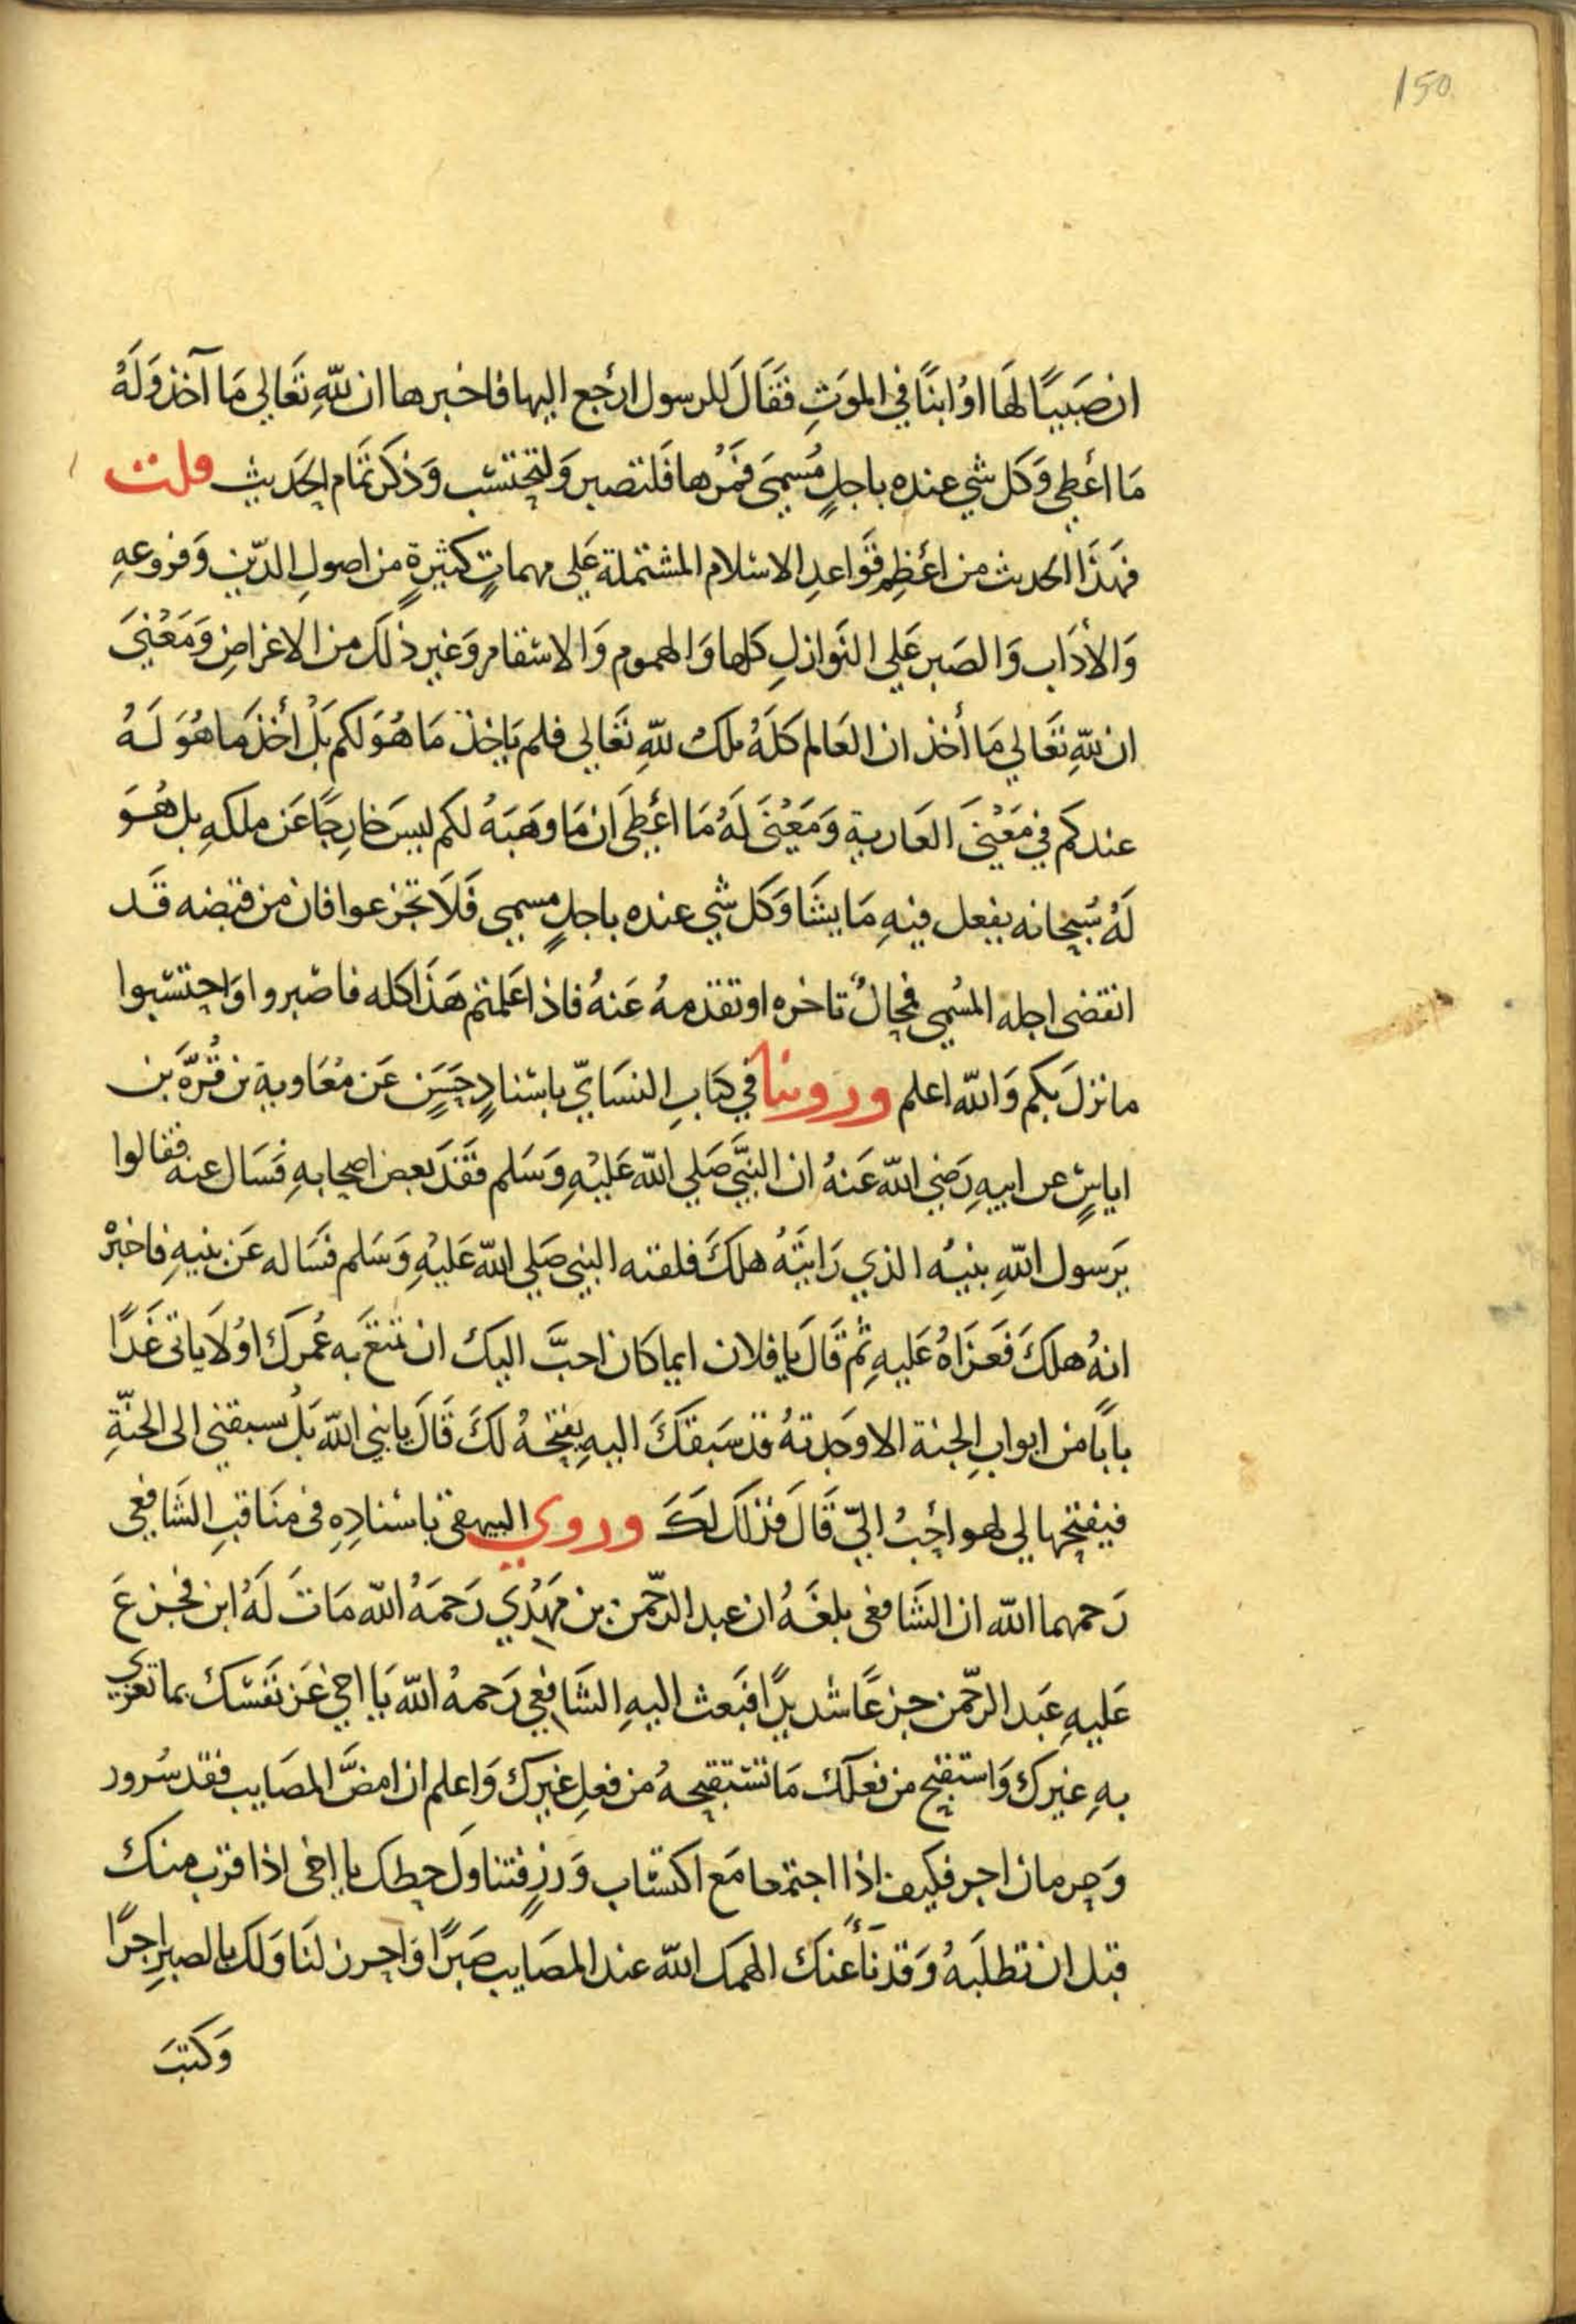 150
ان صَبيًا لهَا اوْ ابنًا في الموَتِ فقَالَ للرسول ارْجع اليها فاخبرها ان للهِ تعَالي مَا آخذ وَلَهُ
مَا أعْطي وَكل شي عنده باجلٍ مُسمىَ فمُرْها فلتصبر وَلتحتسْب وَذكرَ تمَام الحَديث قلت
فهَذَا الحديث من اعْظِم قوَاعدِ الاسْلام المشتملة عَلي مهماتٍ كثيرةٍ من اصولِ الدّين وَفروعهِ
وَالأدَابِ وَالصَبر عَلي النوَازلِ كلها وَالهموم وَالاسْقام وَغير ذلكَ من الاغراضِ وَمَعْنيَ
ان للهِ تعَالي مَا أخذ ان العَالم كلَهُ ملك للهِ تعَالي فلم يَاخذ مَا هُوَ لكم بَلْ أخذ مَا هُوَ لَهُ
عندكم في مَعْنيَ العَارية وَمَعْنيَ لَهُ مَا اعْطيَ ان مَا وهَبَهُ لكم ليسَ خارِجًا عَن ملكهِ بل هُوَ
لَهُ سُبحانه يفعل فيهِ مَا يشَا وَكل شي عنده باجلٍ مسمي فَلَا تجزعوا فان من قبضه قَد
انقضى اجله المسُمي فمحالٌ تاخره او تقدمهُ عَنهُ فاذا عَلمتم هَذَا كله فاصْبروا وَاحتسْبوا
ما نزلَ بكم وَالله اعلم وروينا في كتابِ النسَايّ باسْنادٍ حسَنٍ عَن مُعَاوية بن قُرّة بن
اياسٍ عن ابيهِ رَضي الله عَنهُ ان النبيَّ صَلي الله عَليْهِ وَسَلم فقَدَ بعض اصحابهِ فسَال عنه فقالوا
يَرسول اللهِ بنيُه الذي رَايتَهُ هلكَ فلقته النبي صَلي الله عَليْهِ وَسَلم فسَاله عَن بنيهِ فاخبرْ
انهُ هلكَ فعَزاهُ عَليهِ ثم قَالَ يا فلان ايما كان احبَّ اليك ان تمتعَ به عُمرَك اوْ لَا ياتى غَدًا
بابًا من ابوابِ الجنة الا وَجدتهُ قد سَبقكَ اليهِ يفتحهُ لكَ قَالَ يا نبي الله بَلْ يسبقني الى الجنّةِ
فيفتحها لي لهو احَبُ اليّ قَالَ فذلكَ لكَ وروي البيهقى باسْنادِهِ فى منَاقبِ الشَافعي
رَحمهما الله ان الشَافعى بلغَهُ ان عبد الرّحمن بن مَهْدي رَحمَهُ الله مَاتَ لَهُ ابن فجزعَ
عَليهِ عَبد الرّحمن جزعًا شديدًا فبَعث اليهِ الشَافعي رَحمهُ الله يَا اخي عَز نَفسْك بما تعزي
بهِ غيرك وَاستقبح من فعلك مَا تستقبحهُ من فعلِ غيرك وَاعلم ان امضَّ المصَايب فقد سُرور
وَحرمان اجر فكيف اذا اجتمعا مَع اكتسْاب وَزرٍ فتناوَل حظك يا اخى اذا قرب منك
قبل ان تطلبَهُ وَقد نَأَ عنك الهمك الله عند المصَايب صَبرًا وَاحرز لنَا وَلك بالصبرِ اجرًا
وَكتبَ